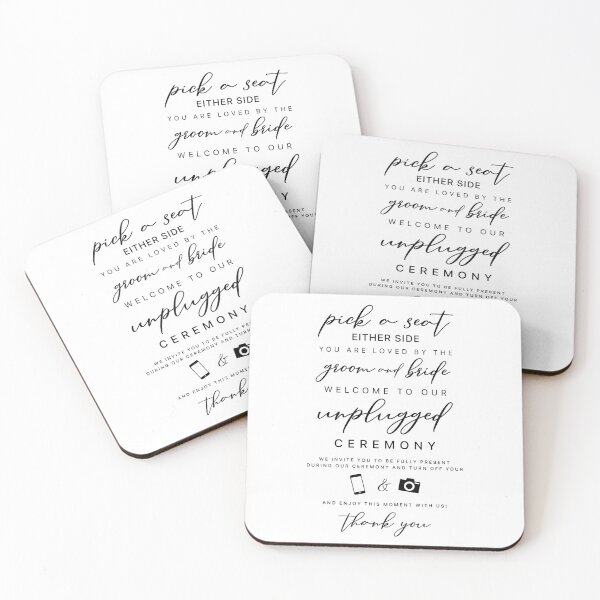 pick a seat
EITHER SIDE
YOU ARE LOVED BY THE
groom and bride
WELCOME TO OUR
unplugged
pick a seat
EITHER SIDE
YOU ARE LOVED BY THE
groom and bride
WELCOME TO OUR
unplugged
CEREMONY
WE INVITE YOU TO BE FULLY PRESENT
DURING OUR CEREMONY AND TURN OFF YOUR
pick a seat
EITHER SIDE
YOU ARE LOVED BY THE
groom and bride
WELCOME TO OUR
unplugged
CEREMONY
WE INVITE YOU TO BE FULLY
DURING OUR CEREMONY AND TURN
&
AND ENJOY THIS MOMENT
thank
pick a seat
EITHER SIDE
YOU ARE LOVED BY THE
groom and bride
WELCOME TO OUR
unplugged
CEREMONY
WE INVITE YOU TO BE FULLY PRESENT
DURING OUR CEREMONY AND TURN OFF YOUR
&
AND ENJOY THIS MOMENT WITH US!
thank you